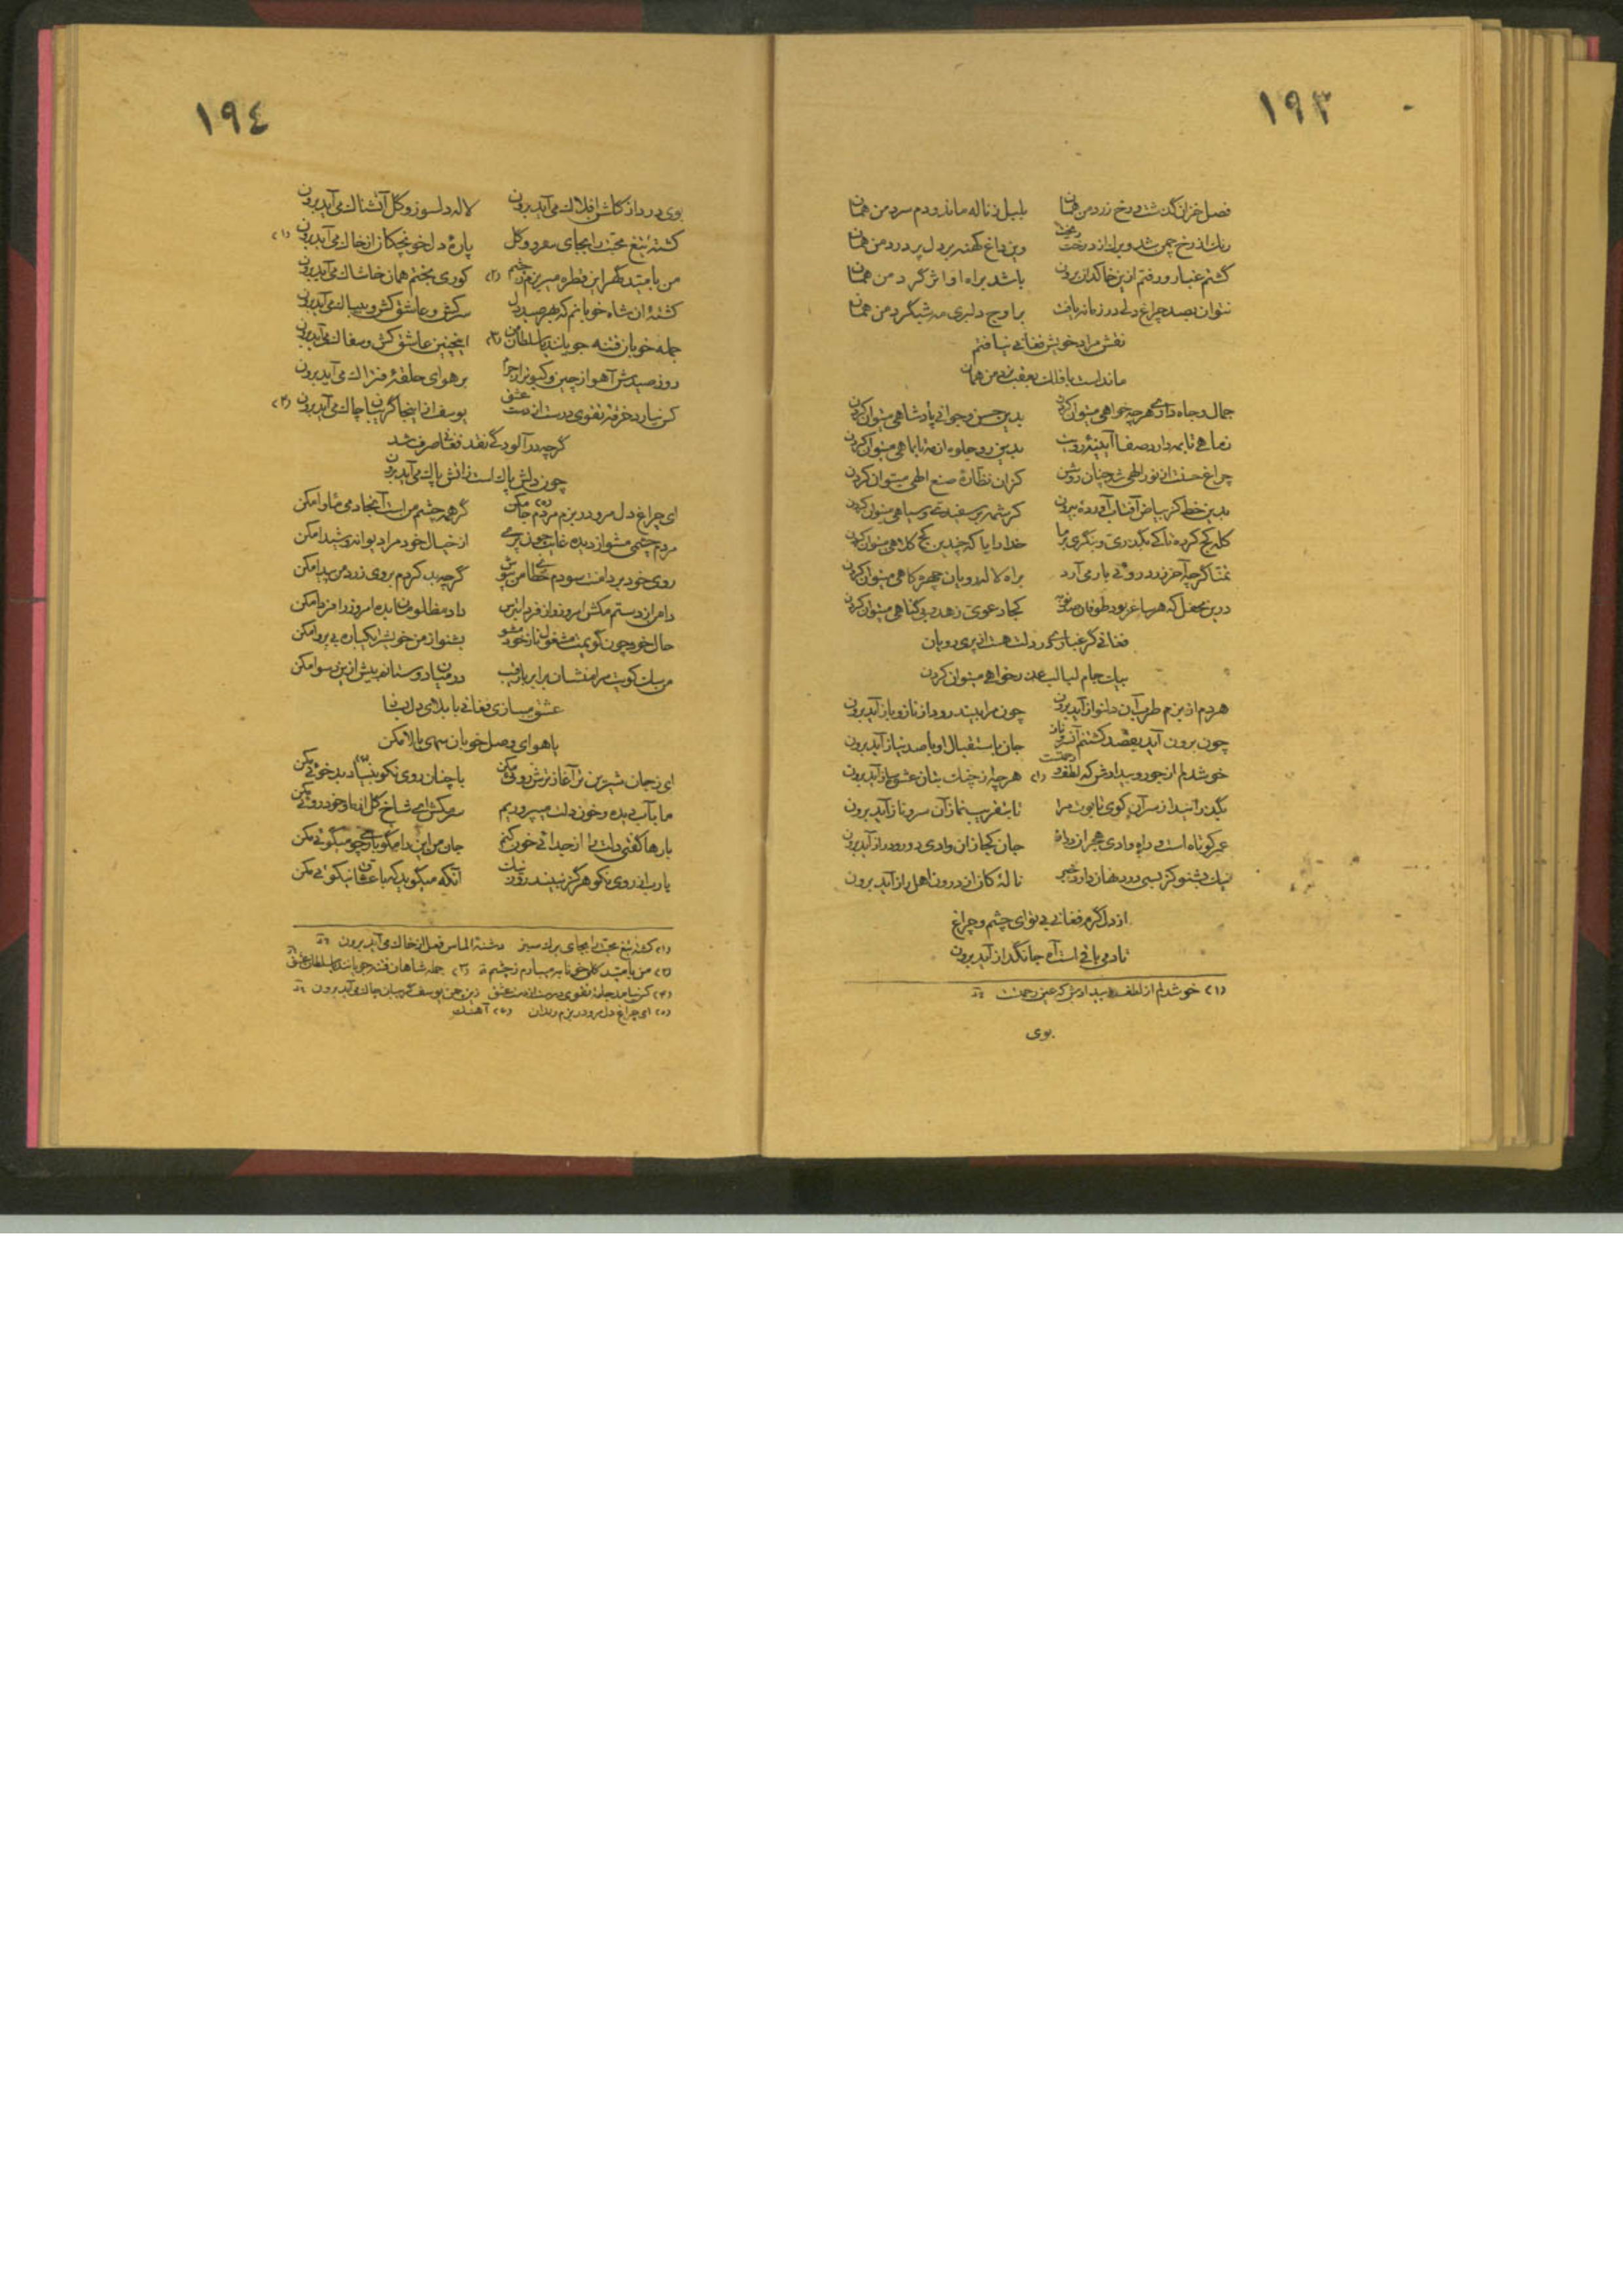 ١٩٣
فصل خزان گذشت و رخ زرد من همان بلبل ز ناله ماند و دم سرد من همان
رنگ از رخ چمن شد و برگ از درخت ریخت وین داغ کهنه بر دل پر درد من همان
گشتم غبار و رفتم ازین خاکدان برون باشد براه او اثر گرد من همان
نتوان بصد چراغ دلی در زمانه یافت بر اوج دلبری مه شبگرد من همان
نقش مراد خویش فغانی نیافتم
ماندست با فلک بعقب نرد من همان
جمال و جاه داری هرچه خواهی میتوان کردن بدین حسن و جوانی پادشاهی میتوان کردن
ز ماهی تا بمه دارد صفا آیینهٔ رویت بدین رو جلوه از مه تا بماهی میتوان کردن
چراغ حسنت از نور الهی شد چنان روشن کزان نظارهٔ صنع الهی میتوان کردن
بدین خط کز بیاض آفتاب آورده بیرون کرشمه بر سفیدی و سیاهی میتوان کردن
کله کج کرده تا کی بگذری و ننگری بر ما خدا را یا که چندین کج کلاهی میتوان کردن
تمنا گرچه آخر زرد رویی بار می آرد براه لاله رویان چهره کاهی میتوان کردن
درین محفل که هر ساغر بود طوفان صد تقوی کجا دعوی زهد و بی گناهی میتوان کردن
فغانی گر غباری در دلت هست از پری رویان
بیک جام لبالب عذر خواهی میتوان کردن
هر دم از بزم طرب آن دلنواز آید برون چون مرا بیند رود از ناز و باز آید برون
چون برون آید بقصد کشتنم آن ترک ناز جان باستقبال او با صد نیاز آید برون
خوشدلم از جور و بیدادش که لطف و رحمتست (١) هر چه از چنگ بتان عشوه ساز آید برون
بگذرانید از سر آن کوی تابوت مرا تا بتقریب نماز آن سرو ناز آید برون
عمر کوتاه است و راه وادی هجران دراز جان کجا زان وادی دور و دراز آید برون
نیک بشنو کز بسی درد نهان دارد خبر نالهٔ کان از درون اهل راز آید برون
از دل گرم فغانی بی تو ای چشم و چراغ
تا دمی باقی است آه جانگداز آید برون
(١) خوشدلم از لطف و بیدادش که عین رحمت
بوی
١٩٤
بوی درد از گلشن افلاک می آید برون لاله دلسوز و گل آتشناک می آید برون
کشتهٔ تیغ محبت را بجای سرو و گل پارهٔ دل خونچکان از خاک می آید برون (١)
من بامید گهر این قطره میریزم ز چشم (٢) کوری بختم همان خاشاک می آید برون
کشتهٔ آن شاه خوبانم که بهر صید دل سرکش و عاشق کش و بیباک می آید برون
جمله خوبان فتنه جویند سلطان من (٣) اینچنین عاشق کش و سفاک می آید برون
روز صیدش آهو از چین و کبوتر از حرم بر هوای حلقهٔ فتراک می آید برون
کس نیارد خرقه تقوی درست از دست عشق یوسف از اینجا گریبان چاک می آید برون (٤)
گرچه در آلودگی نقد فغانی صرف شد
چون دلش پاک است ز آتش پاک می آید برون
ای چراغ دل مرو در بزم مردم جا مکن (٥) گر همه چشم من است آنجا دمی مأوا مکن
مردم چشمی مشو از دیده غایب چون پری از خیال خود مرا دیوانه و شیدا مکن
روی خود بر دامنت سودم خطای من بپوش گرچه بد کردم بروی زرد من پیدا مکن
دامن از دستم مکش امروز و از فردا بترس داد مظلومان بده امروز را فردا مکن
حال خود چون گویمت مشغول ناز خود مشو بشنو از من خویش را یکباره بی پروا مکن
من سگ کویت مرا منشان برابر با رقیب در میان دوستانم بیش ازین رسوا مکن
عشق میبازی فغانی با بلای دل بساز
یا هوای وصل خوبان سهی بالا مکن
ای ز جان شیرین تر آغاز ترش رویی مکن با چنان روی نکو بنیاد بد خویی مکن
ما بآب دیده و خون دلت میپروریم سرمکش ای شاخ گل از ما و خود رویی مکن
بارها گفتی دلت را از جدایی خون کنم جان من این را مگو باری چو میگویی مکن
یارب از روی نکو هرگز نبیند روز نیک آنکه میگوید که با عشاق نیکویی مکن
(١) کشته تیغ محبت را بجای برگ سبز دشنهٔ الماس فعل از خاک می آید برون
(٢) من بامید گلی خونابه میبارم ز چشم (٣) جمله شاهان فتنه جویانند سلطان عشق
(٤) کس نیامد جامهٔ تقوی درست از دست عشق زین چمن یوسف گریبان چاک می آید برون
(٥) ای چراغ دل مرو در بزم رندان (٦) آهنگ